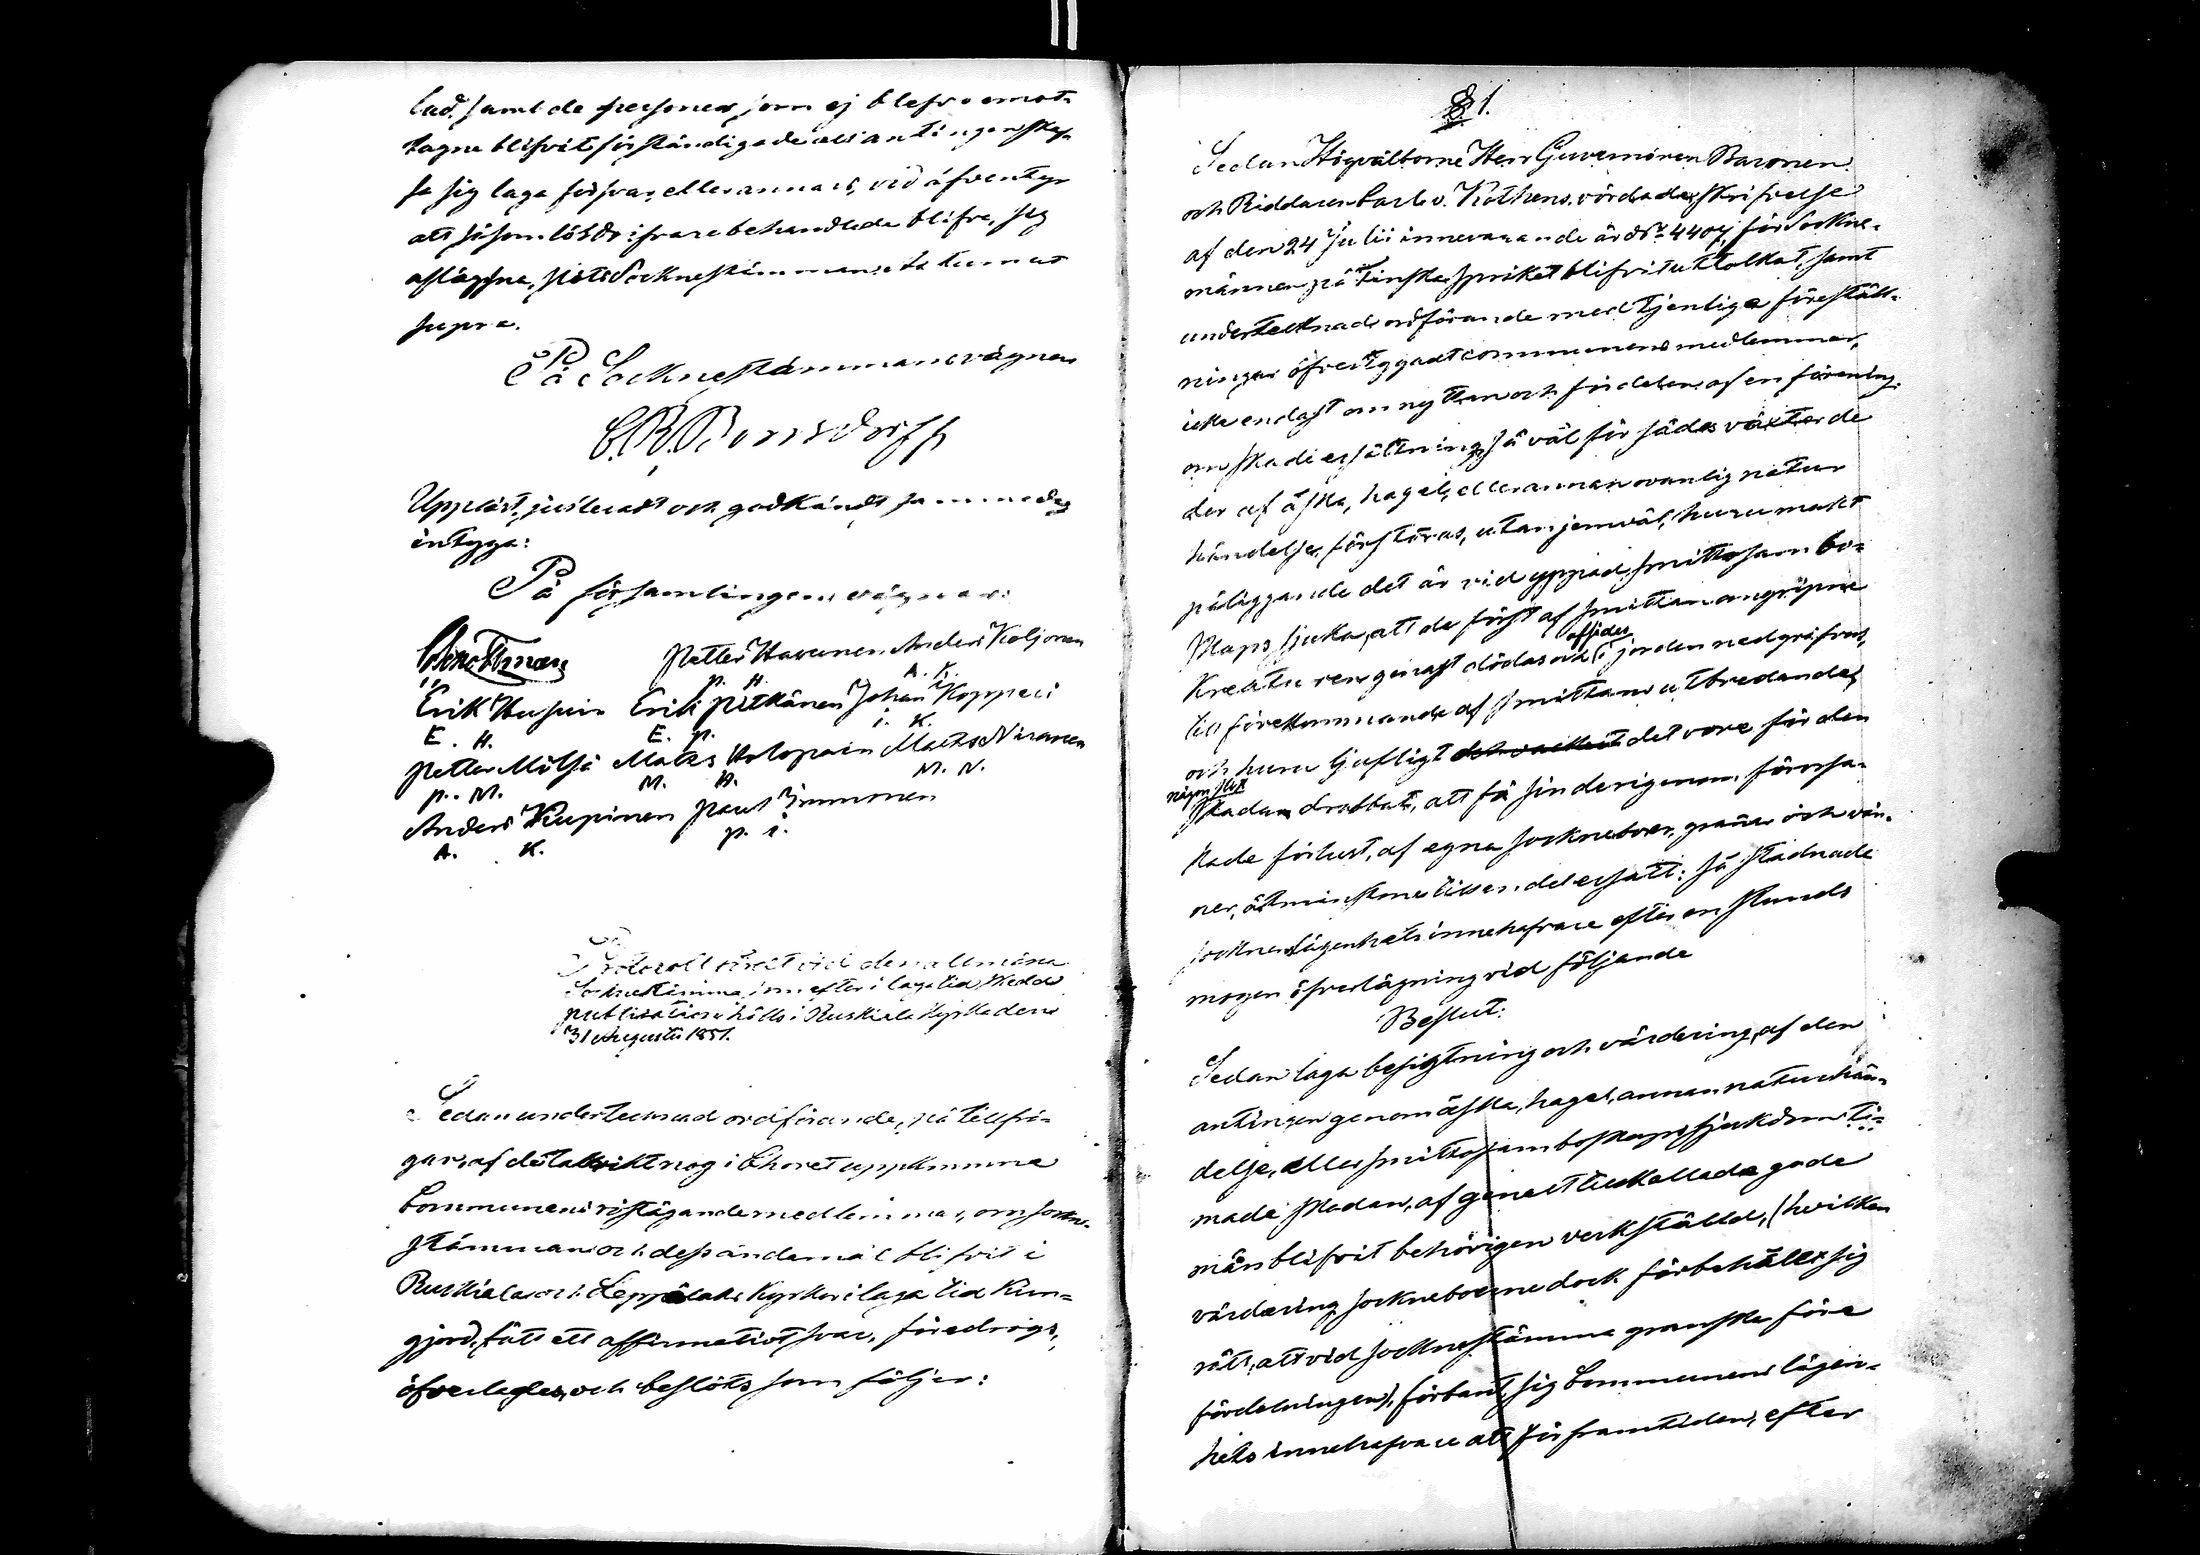 lad. samt de personer som ej blefvo emot-
tagne blifvit förständigade att antingen skaf-
fa sig laga försvar, eller annars, vid äfventyr
att såsom lösdrifvare behandlade blifva, sig
aflägsna, slöts Sockne stämman ut in
supra.
På Sockne stämmans vägnar
C.R. Bonsdorff
Uppläst, justeradt och godkändt samma dag
intyga:
På församlingens vägnar:
Petter Havunen Anders Koljonen
P. H. A. K.
Erik Husuin Erik Pitkänen Johan Koppeli
E. H. E. P. i. K.
Petter Mölsä Mats Holopain Mats Niranen
P. M. M. H. M. N.
Anders Kupinen Paul Immonen
A. K. P. i.
Protocoll fördt vid den allmäna
Sockne stämma, som efter i laga tid skedd
publication hölls i Ruskiala Kyrka den
31 Augusti 1851.
Sedan undertecknad ordförande, på tillfrå-
gan, af de talrikt nog i Choret uppkomne
Communens röstägande medlemmar, om sockne-
stämman och dess ändamål blifvit i
Ruskiala och Leppälaks Kyrkor i laga tid kun-
gjord, fått ett affirmativt svar, föredrogs,
öfverlades, och beslöts som följer:
§ 1.
Sedan Högvälborne Herr Guvernören Baronen
och Riddaren Carl v. Kothens vördade skrifvelse
af den 24 Julii innevarande år № 4404 för Sockne-
männen på Finska språket blifvit uttolkat, samt
undertecknad ordförande med tjenliga föreställ-
ningar öfvertygadt communens medlemmar,
icke endast om nyttan och fördelen af en förening
om skade ersättning så väl för sädes växter de
der af åska, hagel, eller annan ovanlig natur
händelse, förstöras, utan jemväl, huru magt
påliggande det är vid yppad smittosam bo-
skaps sjuka, att de först af smittan angripne
Kreaturen genast dödas och afsides i jorden nedgräfvas,
till förekommande af smittans utbredande,
och huru ljufligt det vore för den
någon slik
skadan drabbat, att få sin derigenom förorsa-
kade förlust, af egna socknebor, grannar och vän-
ner, åtminstone till en del ersatt: så stadnade
socknens lägenhets innehafvare efter en stunds
mogen öfverlägning vid följande
Beslut:
Sedan laga besigtning och värdering, af den
antingen genom åska, hagel, annan natur hän-
delse, eller smittosam boskaps sjukdom ti-
made skadan, af genast tillkallade gode
män blifvit behörigen verkställd, (hvilken
värdering socknebo​erne dock förbehåller sig
rätt, att vid sockne stämma granska före
fördelningen), förband sig Communens lägen-
hets innehafvare att för framtiden, efter